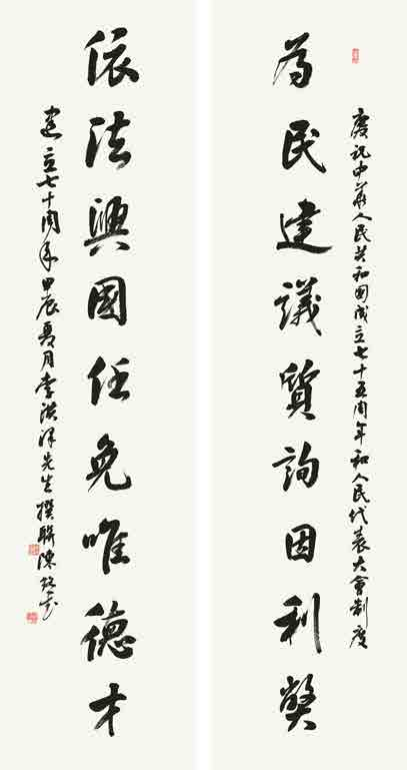 慶祝中華人民共和國成立七十五周年和人民代表大會制度
為民建議質詢因利弊
依法興國任免唯德才
建立七十周年甲辰夏月李洪澤先生撰聯陳